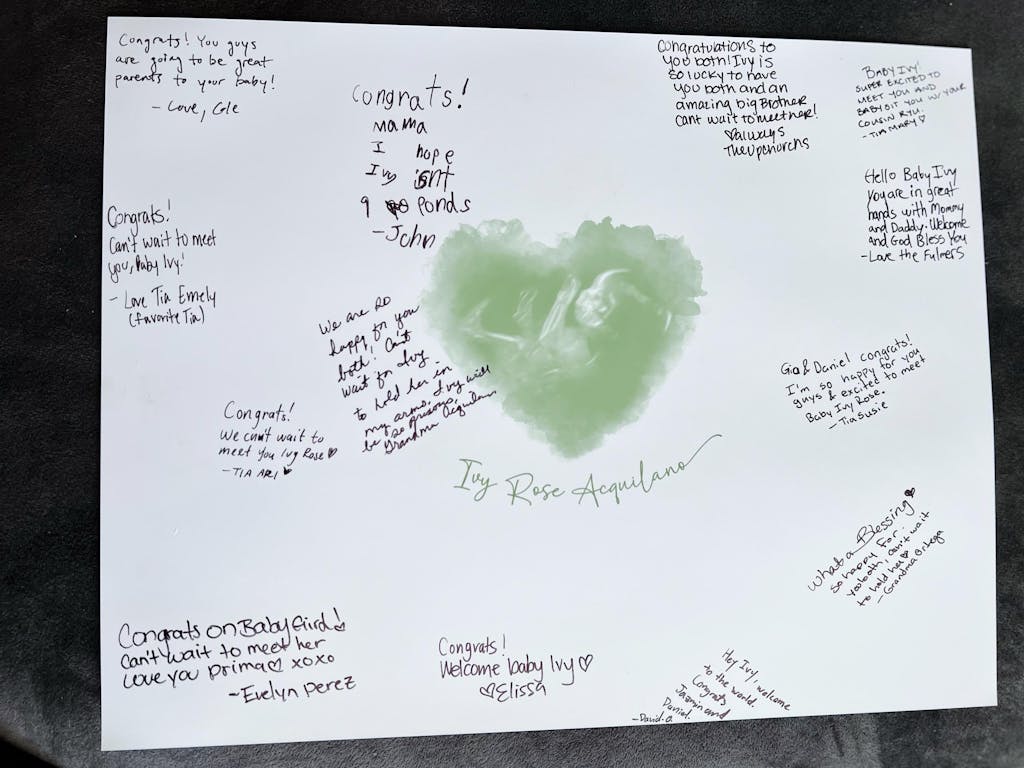 Congrats! You guys
are going to be great
parents to your baby!
- Love, Cole
Congrats!
Mama
I hope
Ivy isnt
9 ponds
- John
Congratulations to
you both! Ivy is
so lucky to have
you both and an
amazing big Brother
Cant wait to meet her!
♡always
The Upchurchs
BABY IVY!
SUPER EXCITED TO
MEET YOU AND
BABYSIT YOU W/ YOUR
COUSIN RYU.
-TIA MARY♡
Hello Baby Ivy
You are in great
hands with Mommy
and Daddy. Welcome
and God Bless You
-Love the Fulmers
Congrats!
Can't wait to meet
you, Baby Ivy!
- Love Tia Emely
(favorite Tia)
We are so
happy for you
both! Can't
wait for Ivy
to hold her in
my arms. Ivy will
be so precious,
Grandma Acquilano
Congrats!
We can't wait to
meet you Ivy Rose♡
-TIA ARI ♥
Gia & Daniel congrats!
I'm so happy for you
guys & excited to meet
Baby Ivy Rose.
- Tia Susie
Ivy Rose Acquilano
What a Blessing♡
so happy for
you both, can't wait
to hold her♡
-Grandma Ortega
Congrats on Baby Girl!
Can't wait to meet her
Love you prima♡ xoxo
~Evelyn Perez
Congrats!
Welcome baby Ivy♡
♡Elissa
Hey Ivy, welcome
to the world.
Congrats
Jazmin and
Daniel.
-David.a